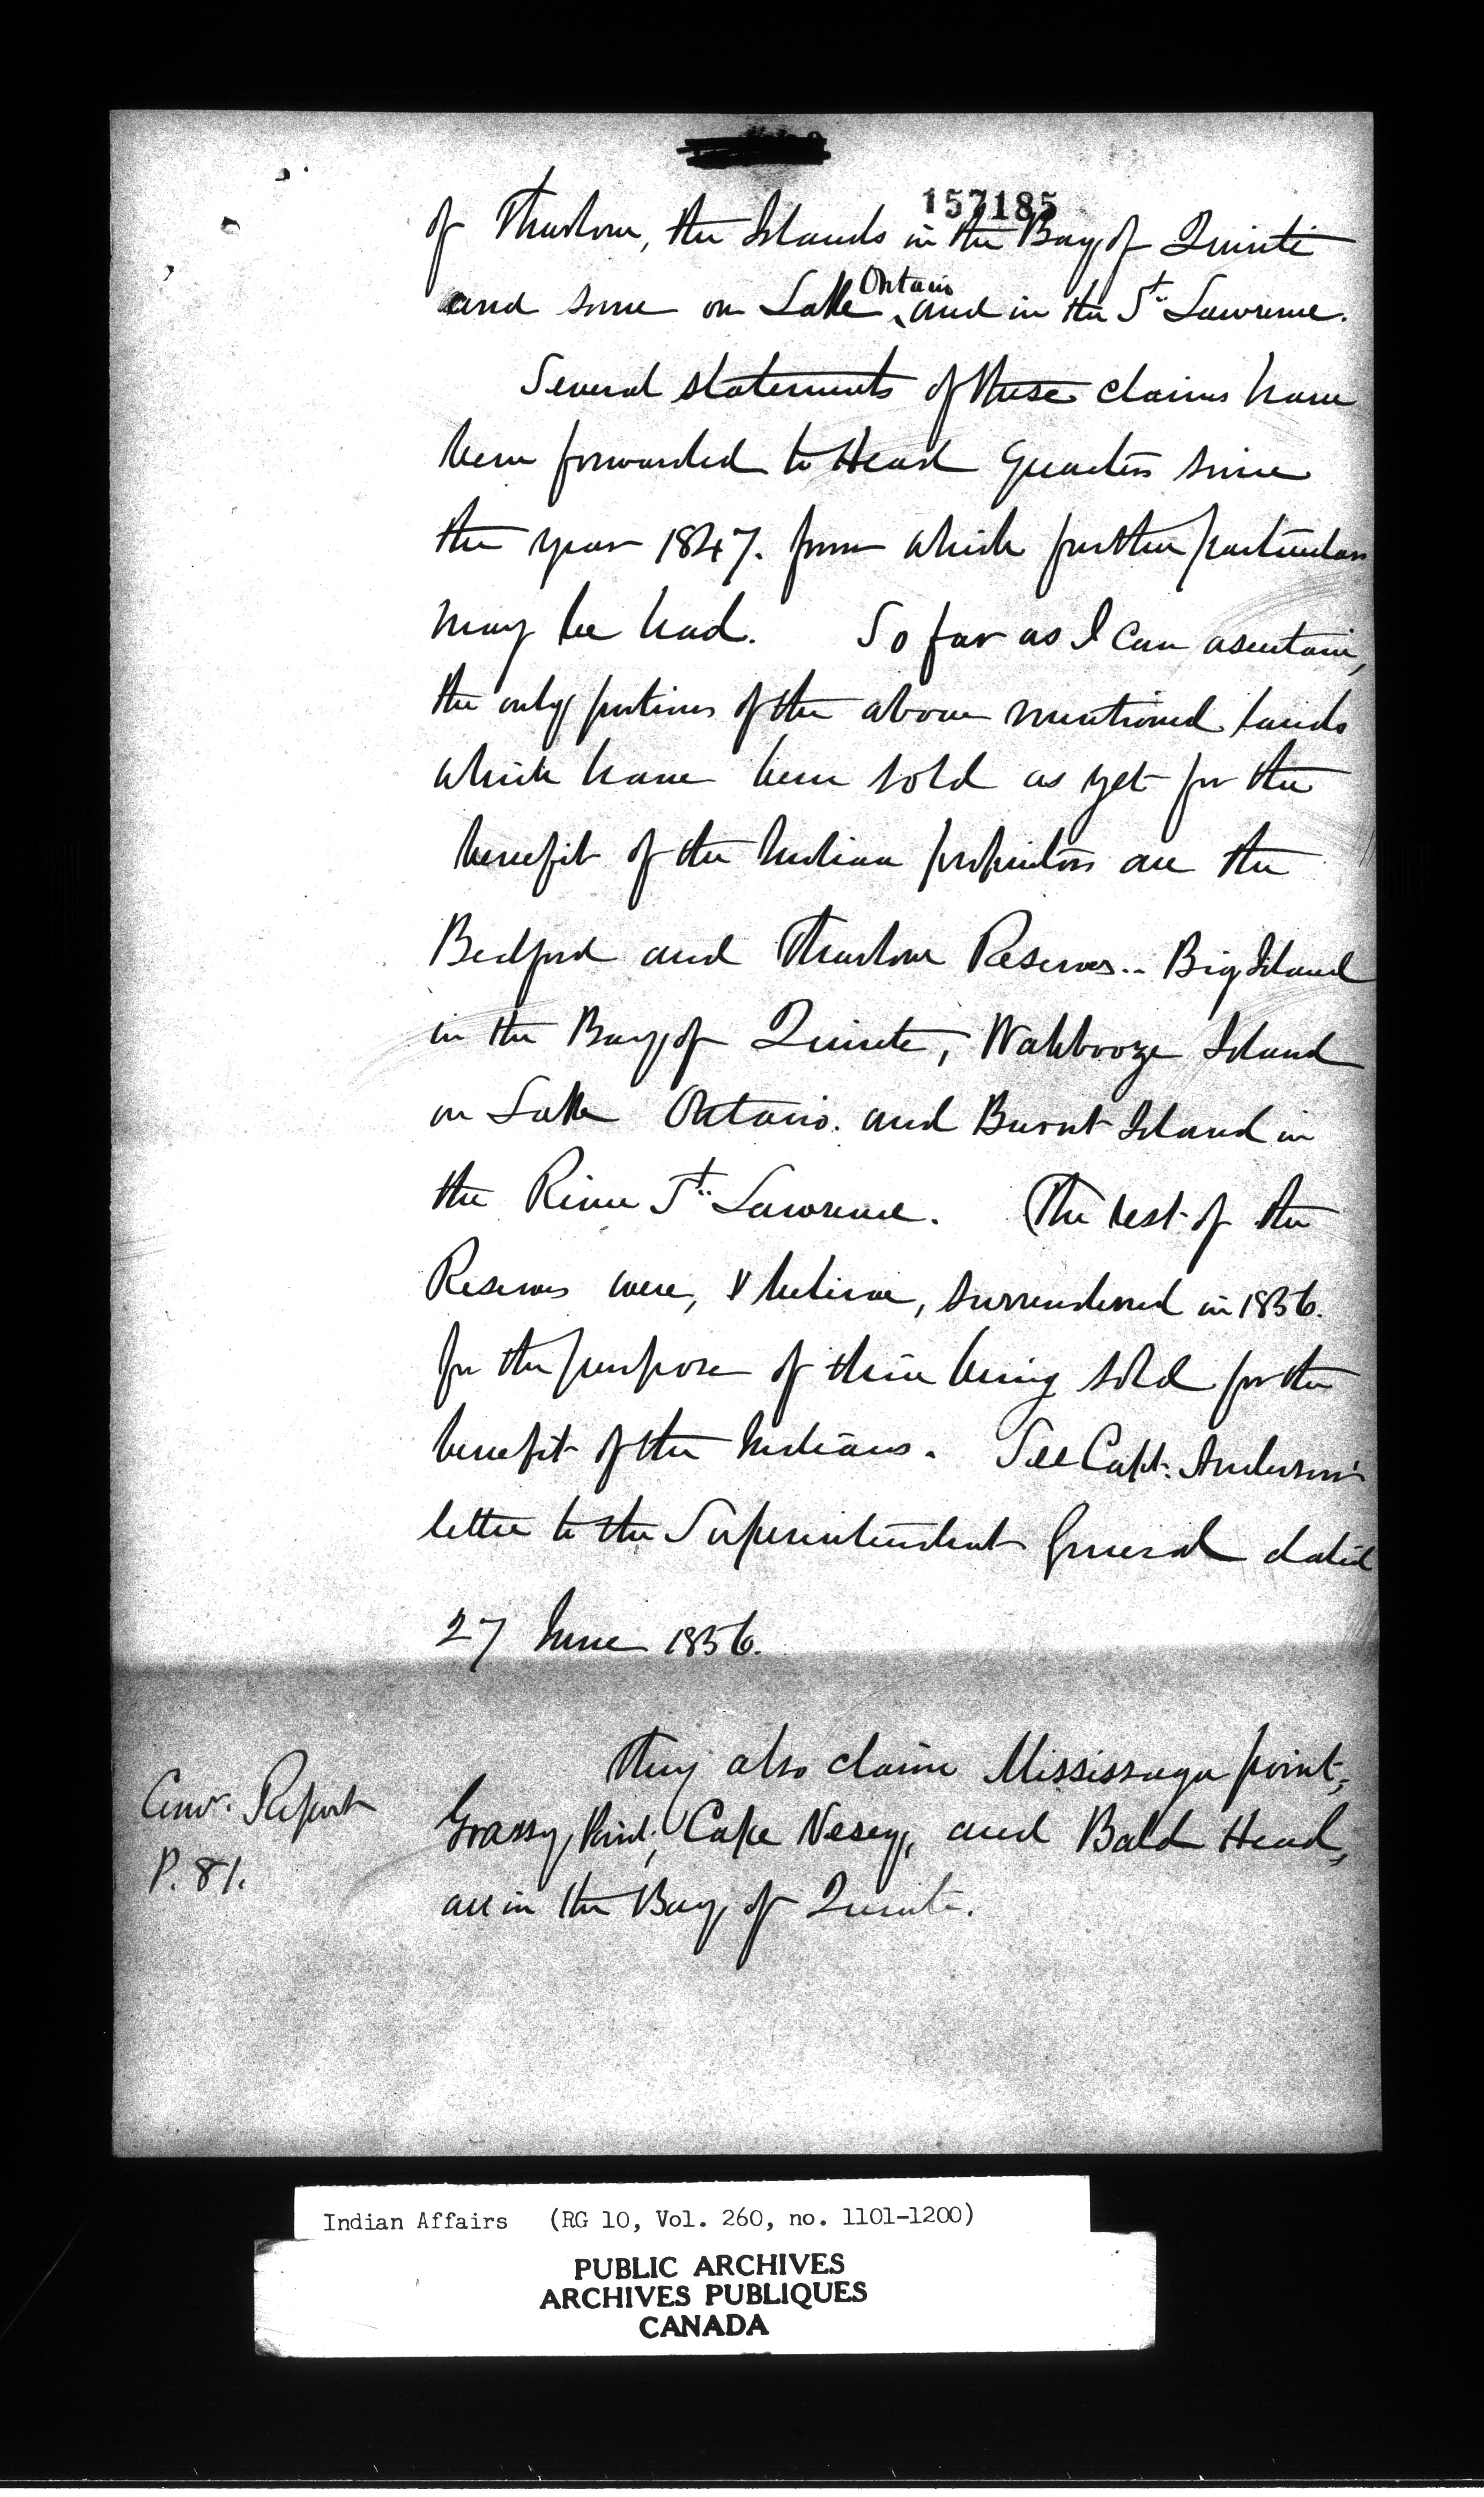 157185
of Thurlow, the Islands in the Bay of Quinté
and some on Lake Ontario and in the St. Lawrence.
Several statements of these claims have
been forwarded to Head Quarters since
the year 1847. from which further particulars
may be had. So far as I can ascertain,
the only portions of the above mentioned lands
which have been sold as yet for the
benefit of the Indian proprietors are the
Bedford and Thurlow Reserves.. Big Island
in the Bay of Quinté, Wahbooze Island
on Lake Ontario. and Burnt Island in
the River St. Lawrence. The rest of the
Reserves were, I believe, surrendered in 1856.
for the purpose of their being sold for the
benefit of the Indians. See Capt. Anderson's
letter to the Superintendent General dated
27 June 1856.
They also claim Mississaga point,
Grassy Point, Cape Vesey, and Bald Head,
all in the Bay of Quinté.
Report
P. 81.
Indian Affairs (RG 10, Vol. 260, no. 1101-1200)
PUBLIC ARCHIVES
ARCHIVES PUBLIQUES
CANADA